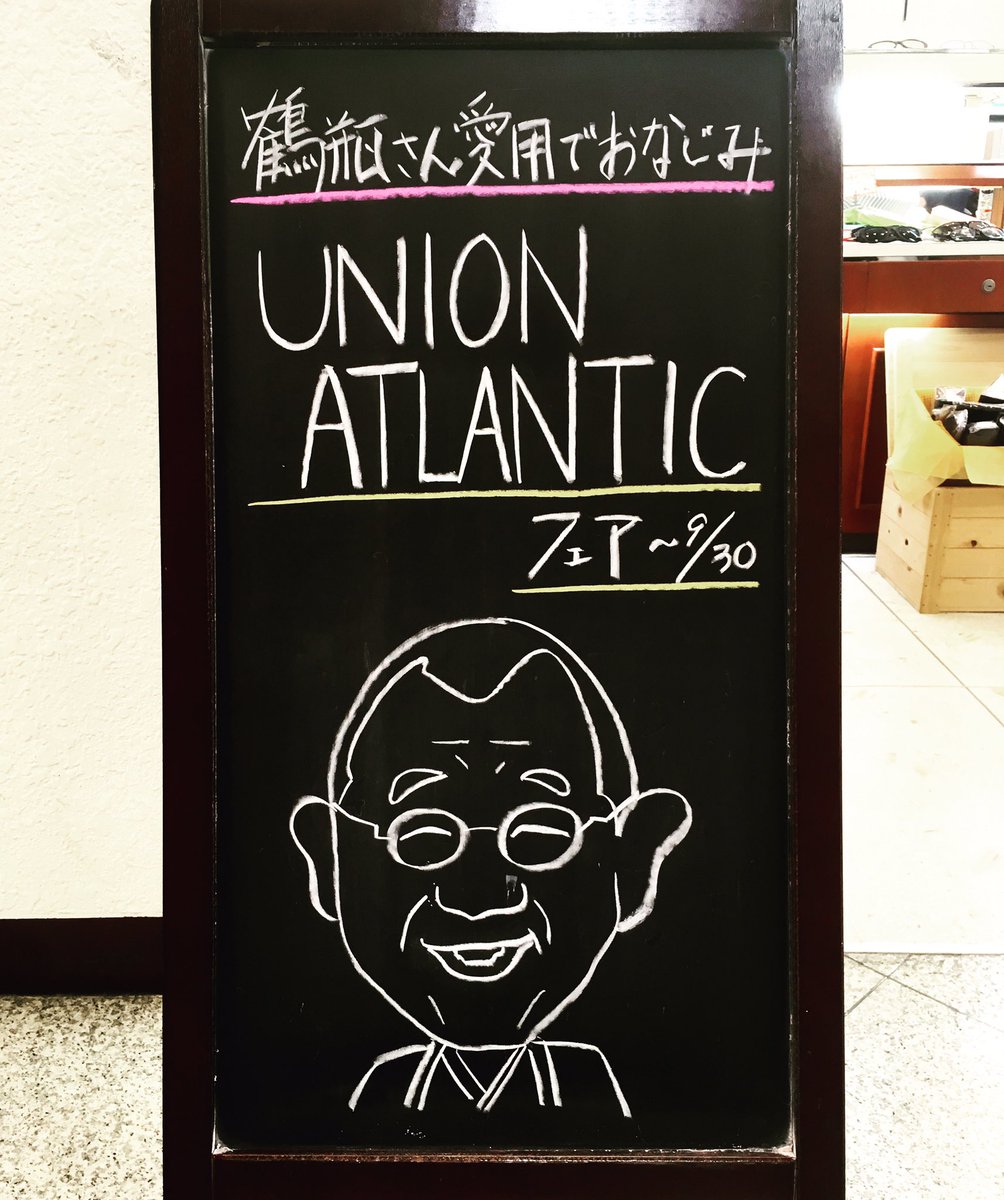 鶴瓶さん愛用でおなじみ
UNION
ATLANTIC
フェア〜9/30